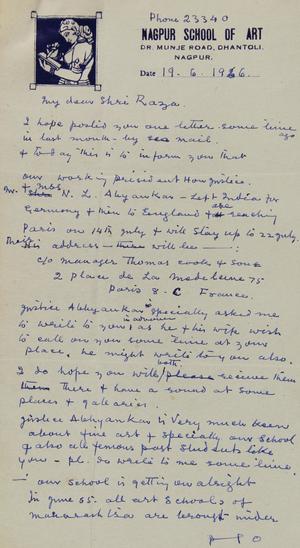 Phone 23340
NAGPUR SCHOOL OF ART
DR. MUNJE ROAD, DHANTOLI,
NAGPUR.
Date 19.6.1966.
My dear Shri Raza.
I hope posted you one letter some time ago
in last month by sea mail.
& today this is to inform you that
our working president Hon Justice.
Mr. & Mrs N. L. Abhyankar - Left India for
Germany & then to England & are reaching
Paris on 14th July & will stay up to 22 July.
Their address will be —:
c/o manager Thomas cook & Sons
2 place de La Madeleine 75
Paris 8 - C France.
Justice Abhyankar specially asked me
to write to you in advance as he & his wife wish
to call on you some time at your
place. he might write to you also.
I do hope you will please receive them both
there & have a round at some
places & galleries.
Justice Abhyankar is very much keen
about fine art & specially our school
& also all famous past students like
you - pl. do write to me some time.
— our school is getting on alright
In June 65. all art Schools of
maharashtra are brought under
P T O